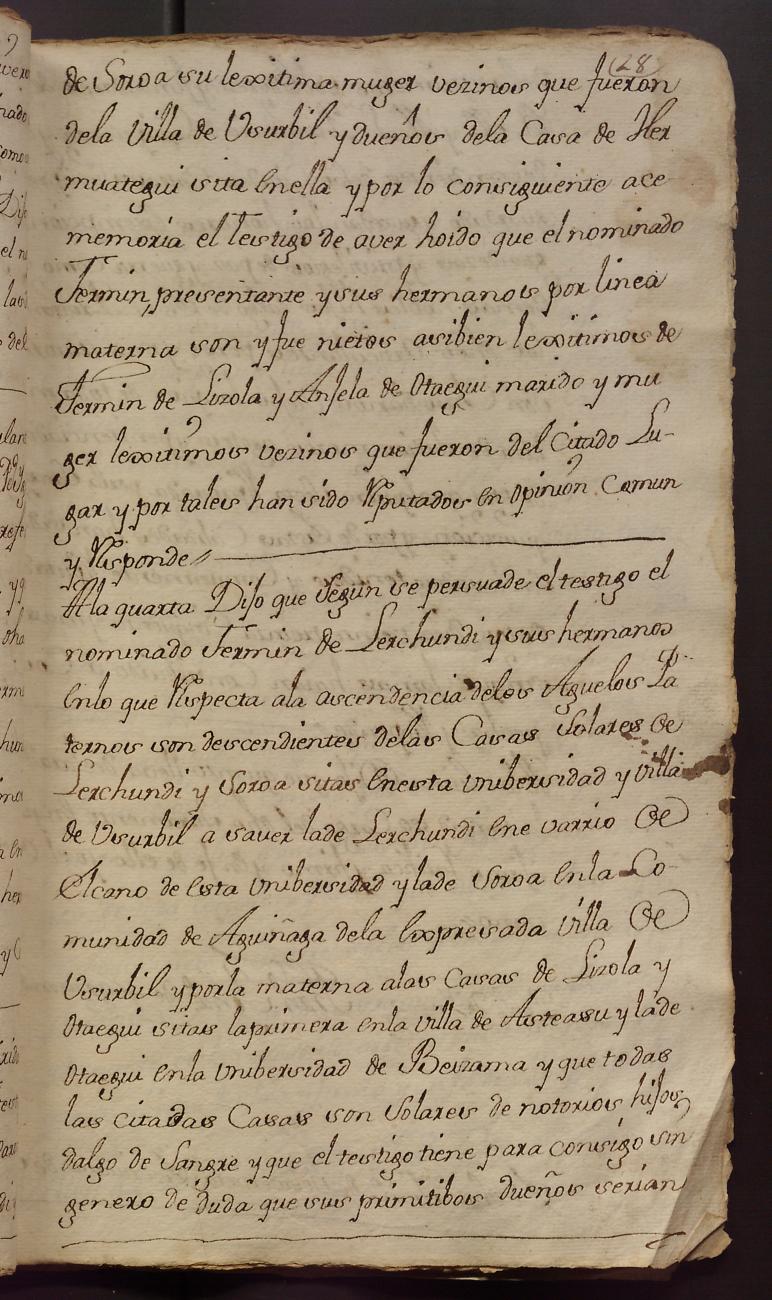 (28)
de Soroa su lexitima muger vezinos que fueron
dela Villa de Vsurbil y dueños dela Casa de Her
muategui sita enella y por lo consiguiente ace
memoria el Testigo de aver hoido que el nominado
Fermin, presentante y sus hermanos por linea
materna son y fue nietos asibien lexitimos de
Fermin de Lizola y Anjela de Otaegui marido y mu
ger lexitimos vezinos que fueron del Citado Lu-
gar y por tales han sido Reputados en Opinion Comun
y Responde
Ala quarta Dijo que Segun se persuade el testigo el
nominado Fermin de Lerchundi y sus hermanos
enlo que Respecta ala ascendencia delos Aguelos Pa
ternos son descendientes delas Casas Solares de
Lerchundi y Soroa sitas enesta Unibersidad y Villa
de Vsurbil a saver lade Lerchundi ene varrio de
Elcano de esta Unibersidad y lade Soroa enla Co-
munidad de Aguiñaga dela Expresada Villa de
Vsurbil y porla materna alas Casas de Lizola y
Otaegui sitas laprimera enla Villa de Asteasu y lade
Otaegui enla Unibersidad de Beizama y que todas
las citadas Casas son Solares de notorios hijos
dalgo de Sangre y que el testigo tiene para consigo sin
genero de duda que sus primitibos dueños serian